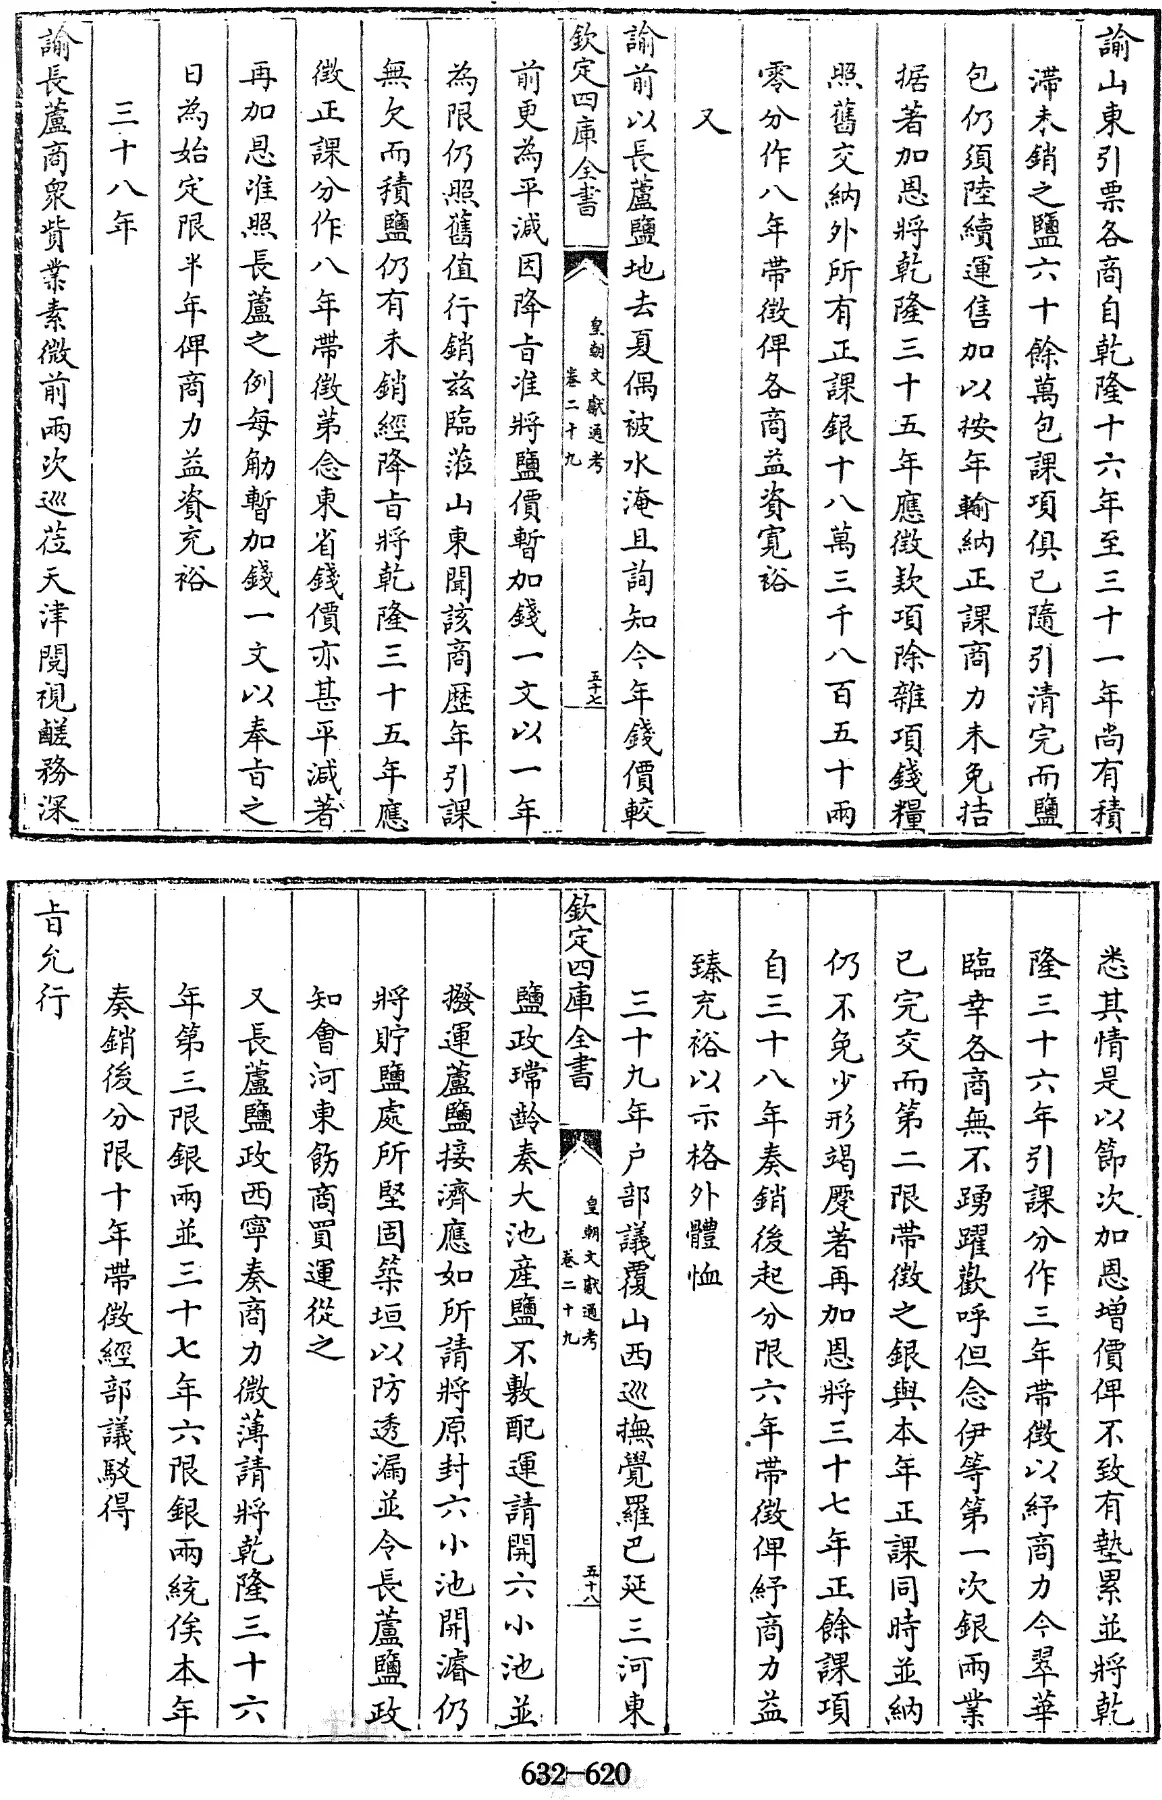 諭山東引票各商自乾隆十六年至三十一年尚有積
滯未銷之鹽六十餘萬包課項俱已隨引清完而鹽
包仍須陸續運售加以按年輸納正課商力未免拮
据著加恩將乾隆三十五年應徴欵項除雜項錢糧
照舊交納外所有正課銀十八萬三千八百五十兩
零分作八年帶徴俾各商益資寛裕
又
諭前以長蘆鹽地去夏偶被水淹且詢知今年錢價較
欽定四庫全書
皇朝文獻通考
卷二十九
五十七
前更為平減因降旨准將鹽價暫加錢一文以一年
為限仍照舊值行銷兹臨蒞山東聞該商歴年引課
無欠而積鹽仍有未銷經降旨將乾隆三十五年應
徴正課分作八年帶徴第念東省錢價亦甚平減著
再加恩准照長蘆之例每觔暫加錢一文以奉旨之
日為始定限半年俾商力益資充裕
三十八年
諭長蘆商衆貲業素微前兩次巡莅天津閲視鹺務深
悉其情是以節次加恩増價俾不致有墊累並將乾
隆三十六年引課分作三年帶徴以紓商力今翠華
臨幸各商無不踴躍歡呼但念伊等第一次銀兩業
已完交而第二限帶徴之銀與本年正課同時並納
仍不免少形竭蹷著再加恩將三十七年正餘課項
自三十八年奏銷後起分限六年帶徴俾紓商力益
臻充裕以示格外體恤
三十九年户部議覆山西巡撫覺羅巴延三河東
欽定四庫全書
皇朝文獻通考
卷二十九
五十八
鹽政瑺齡奏大池産鹽不敷配運請開六小池並
撥運蘆鹽接濟應如所請將原封六小池開濬仍
將貯鹽處所堅固築垣以防透漏並令長蘆鹽政
知會河東飭商買運從之
又長蘆鹽政西寧奏商力微薄請將乾隆三十六
年第三限銀兩並三十七年六限銀兩統俟本年
奏銷後分限十年帶徴經部議駁得
旨允行
632-620